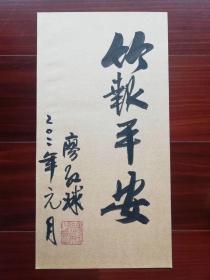 竹報平安
廖红球
二〇二年元月